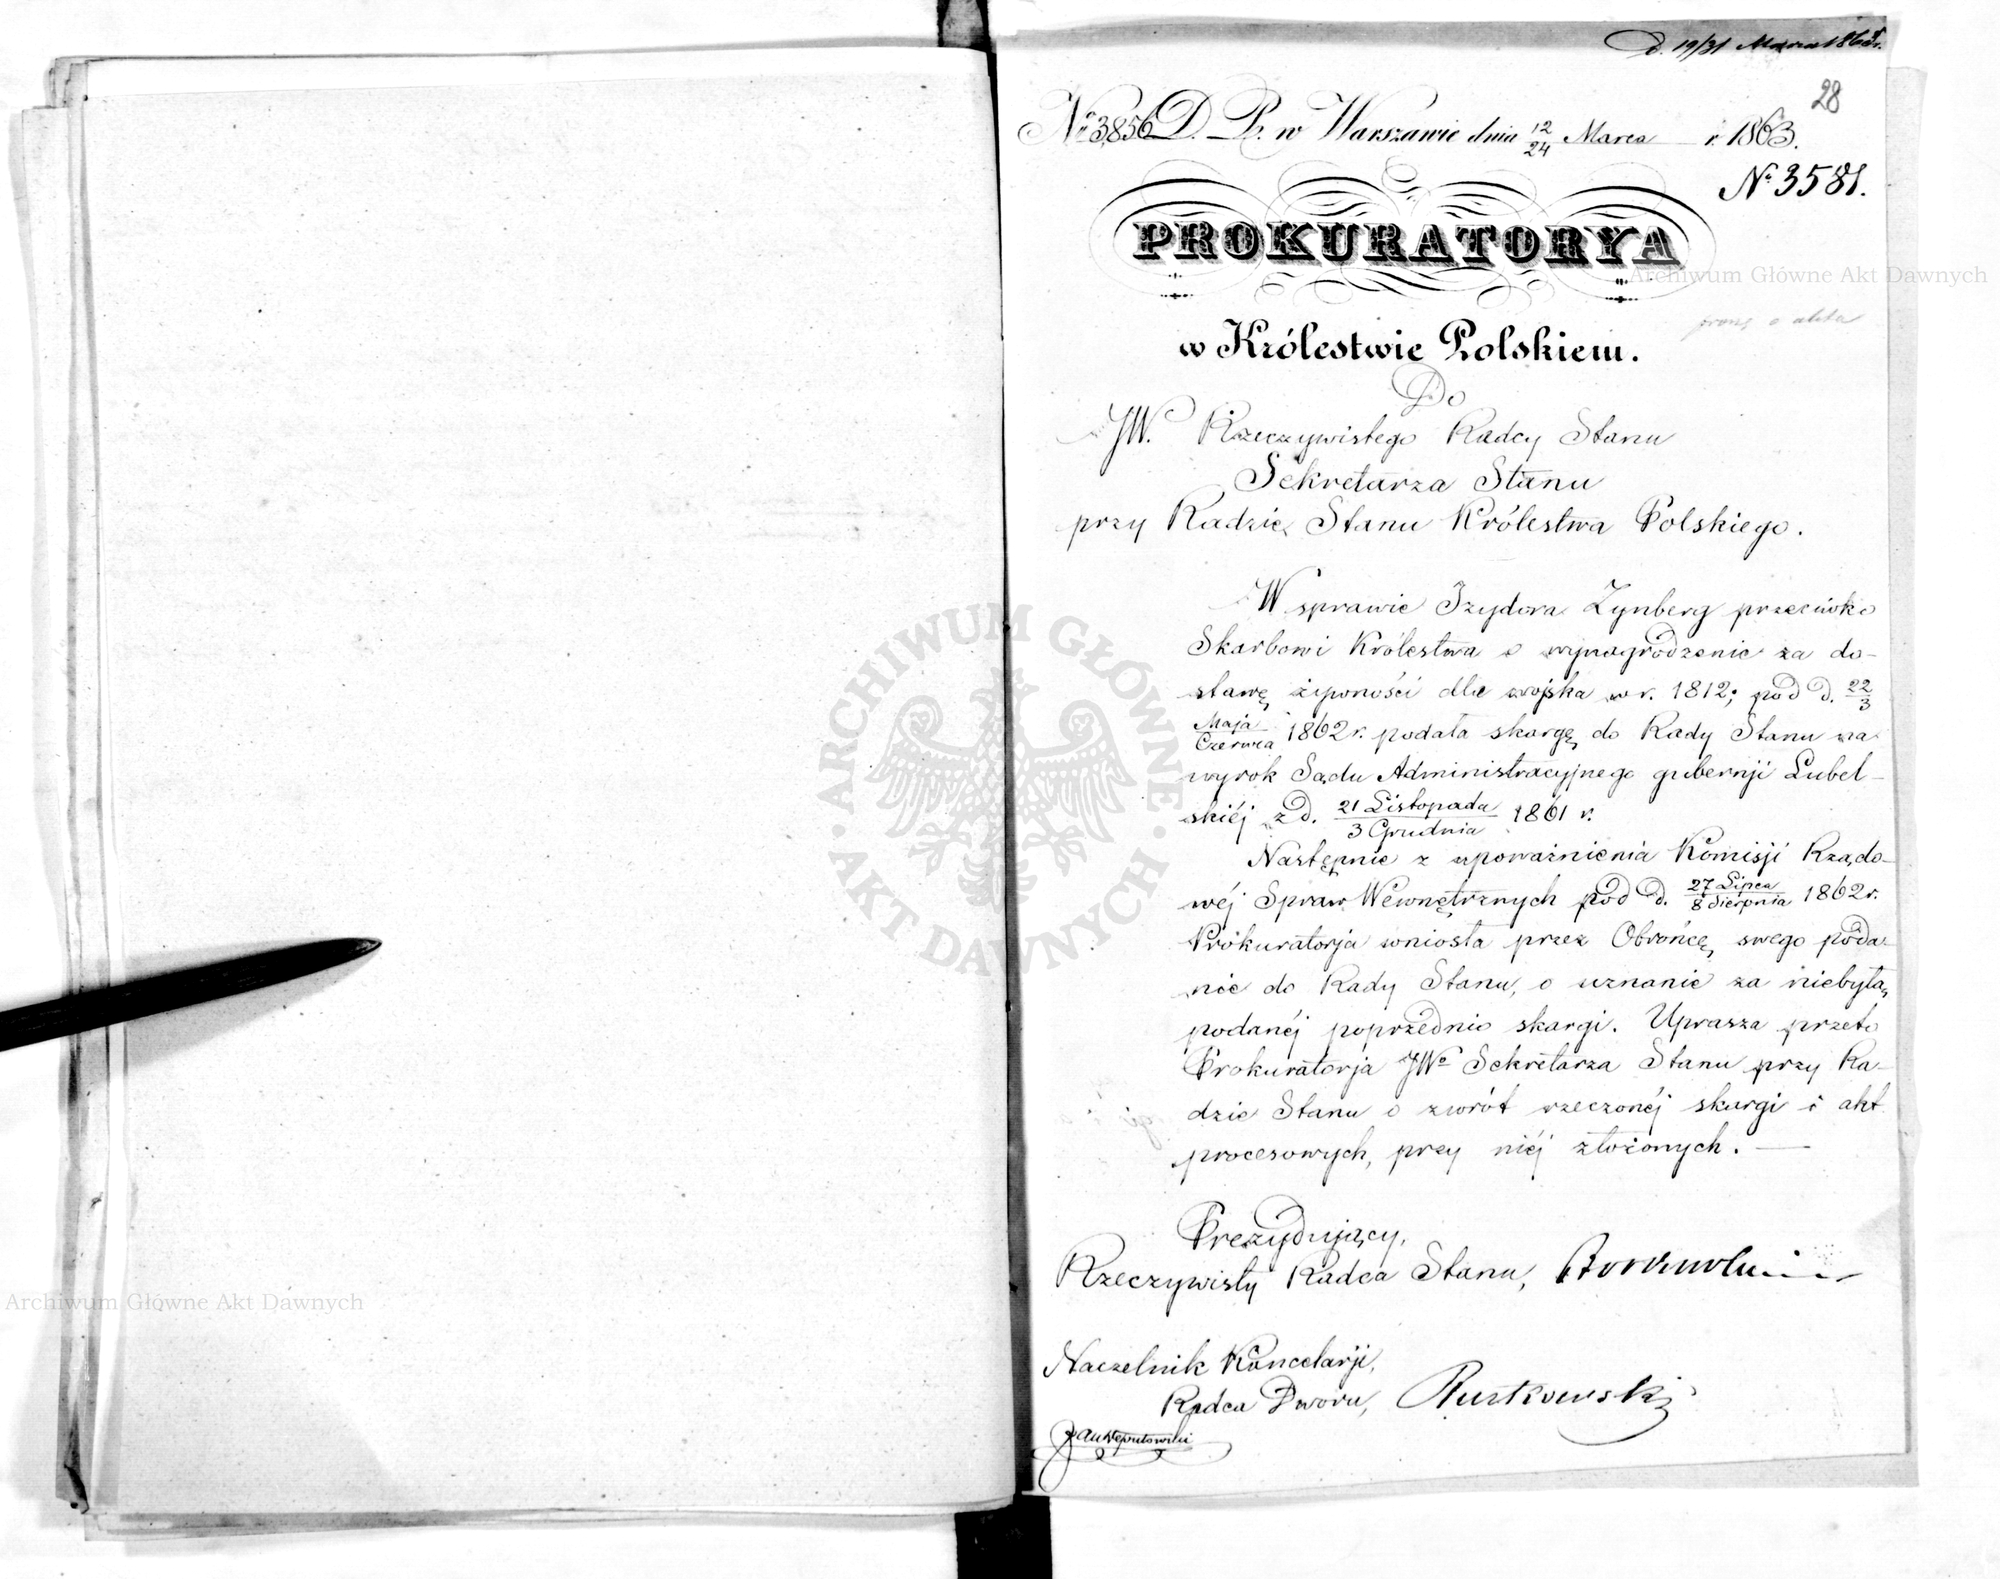 d. 19/31 Marca 1863 r.
28
No 3,856 D. Pr. w Warszawie dnia 12/24 Marca r. 1863.
No 3581.
PROKURATORYA
Archiwum Główne Akt Dawnych
proszę o akta
w Królestwie Polskiem.
Do
JW. Rzeczywistego Radcy Stanu
Sekretarza Stanu
przy Radzie Stanu Królestwa Polskiego.
W sprawie Izydora Zynberg przeciwko
Skarbowi Królestwa o wynagrodzenie za do-
stawę żywności dla wojska w r. 1812; pod d. 22/3
Maja/Czerwca 1862 r. podała skargę do Rady Stanu na
wyrok Sądu Administracyjnego gubernji Lubel-
skiéj z d. 21 Listopada/3 Grudnia 1861 r.
Następnie z upoważnienia Komisji Rządo-
wéj Spraw Wewnętrznych pod d. 27 Lipca/8 Sierpnia 1862 r.
Prokuratorja wniosła przez Obrońcę swego poda-
nie do Rady Stanu, o uznanie za niebyłą
podanéj poprzednio skargi. Uprasza przeto
Prokuratorja JWo Sekretarza Stanu przy Ra-
dzie Stanu o zwrót rzeczonéj skargi i akt
procesowych, przy niéj złożonych.
Prezydujący,
Rzeczywisty Radca Stanu,
Naczelnik Kancelarji,
Radca Dworu, Rutkowski
ARCHIWUM GŁÓWNE
AKT DAWNYCH
Archiwum Główne Akt Dawnych